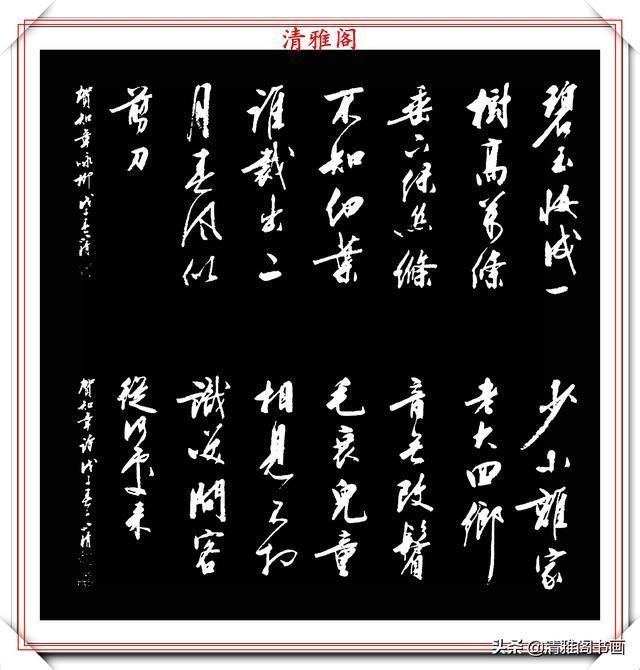 清雅阁
碧玉妝成一
樹高萬條
垂下綠絲縧
不知細葉
誰裁出二
月春風似
剪刀
賀知章詠柳戊子春
少小離家
老大回鄉
音無改鬢
毛衰兒童
相見不相
識笑問客
從何處來
賀知章詩戊子春
头条@清雅阁书画